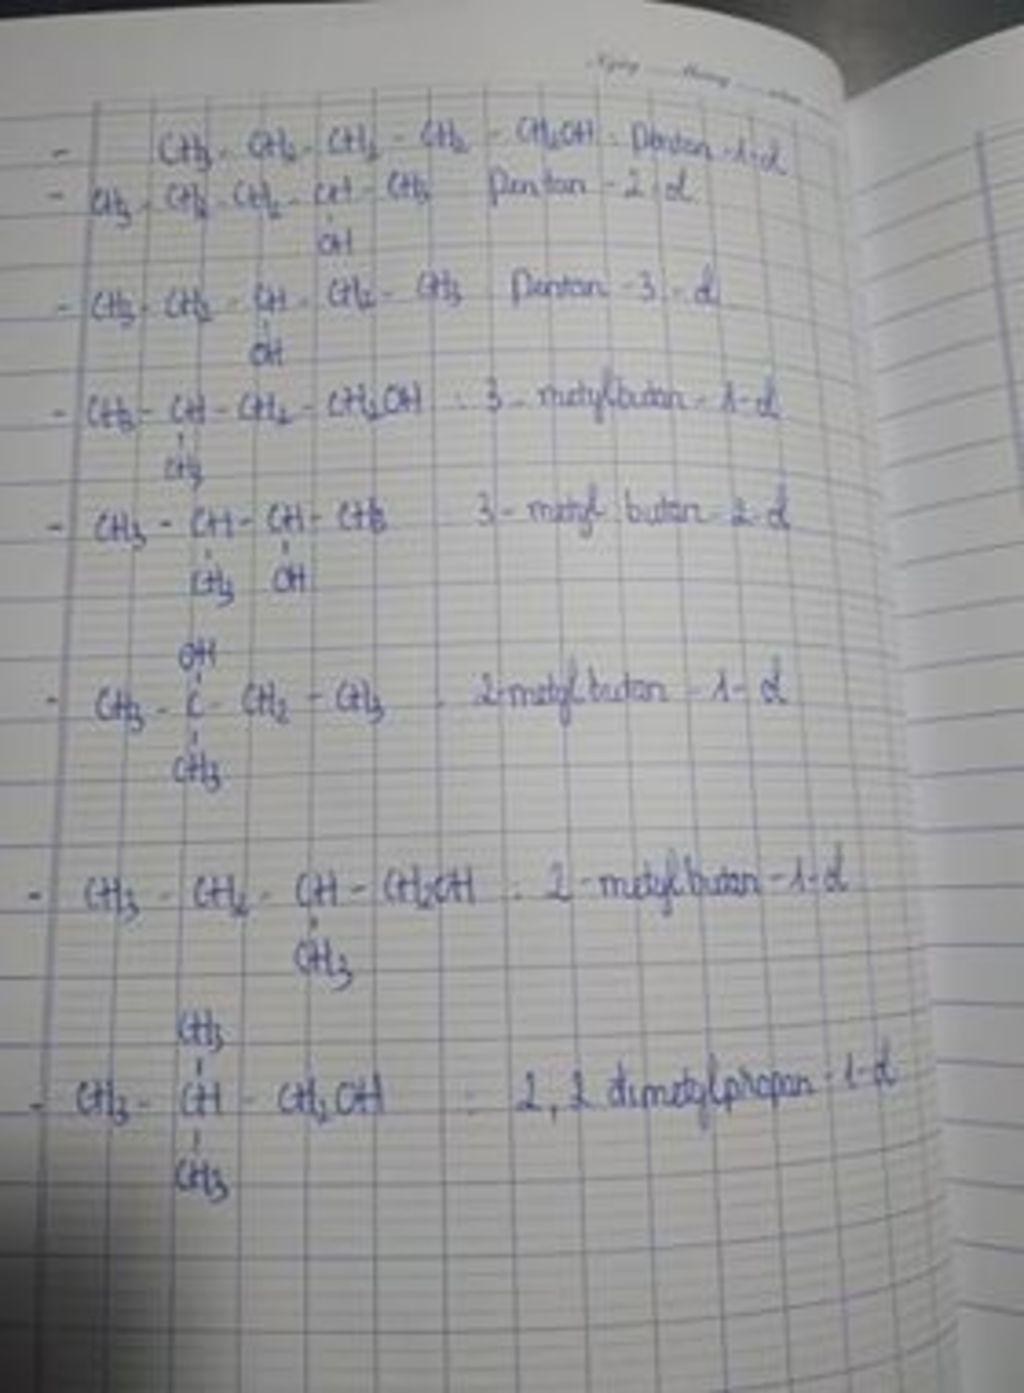 Ngày ... tháng ... năm
- CH3 - CH2 - CH2 - CH2 - CH2OH : Pentan - 1 - ol
- CH3 - CH2 - CH2 - CH - CH3 Pentan - 2 - ol
OH
- CH3 - CH2 - CH - CH2 - CH3 Pentan - 3 - ol
OH
- CH3 - CH - CH2 - CH2OH : 3 - metylbutan - 1 - ol
CH3
- CH3 - CH - CH - CH3 3 - metyl butan - 2 - ol
CH3 OH
OH
- CH3 - C - CH2 - CH3 : 2-metylbutan - 1 - ol
CH3
- CH3 - CH2 - CH - CH2OH : 2 - metylbutan - 1 - ol
CH3
CH3
- CH3 - CH - CH2OH : 2, 2 dimetylpropan - 1 - ol
CH3